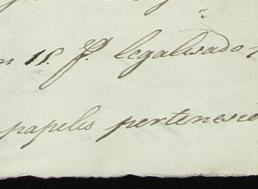 n 18. f.s legalisado
papeles pertenecie